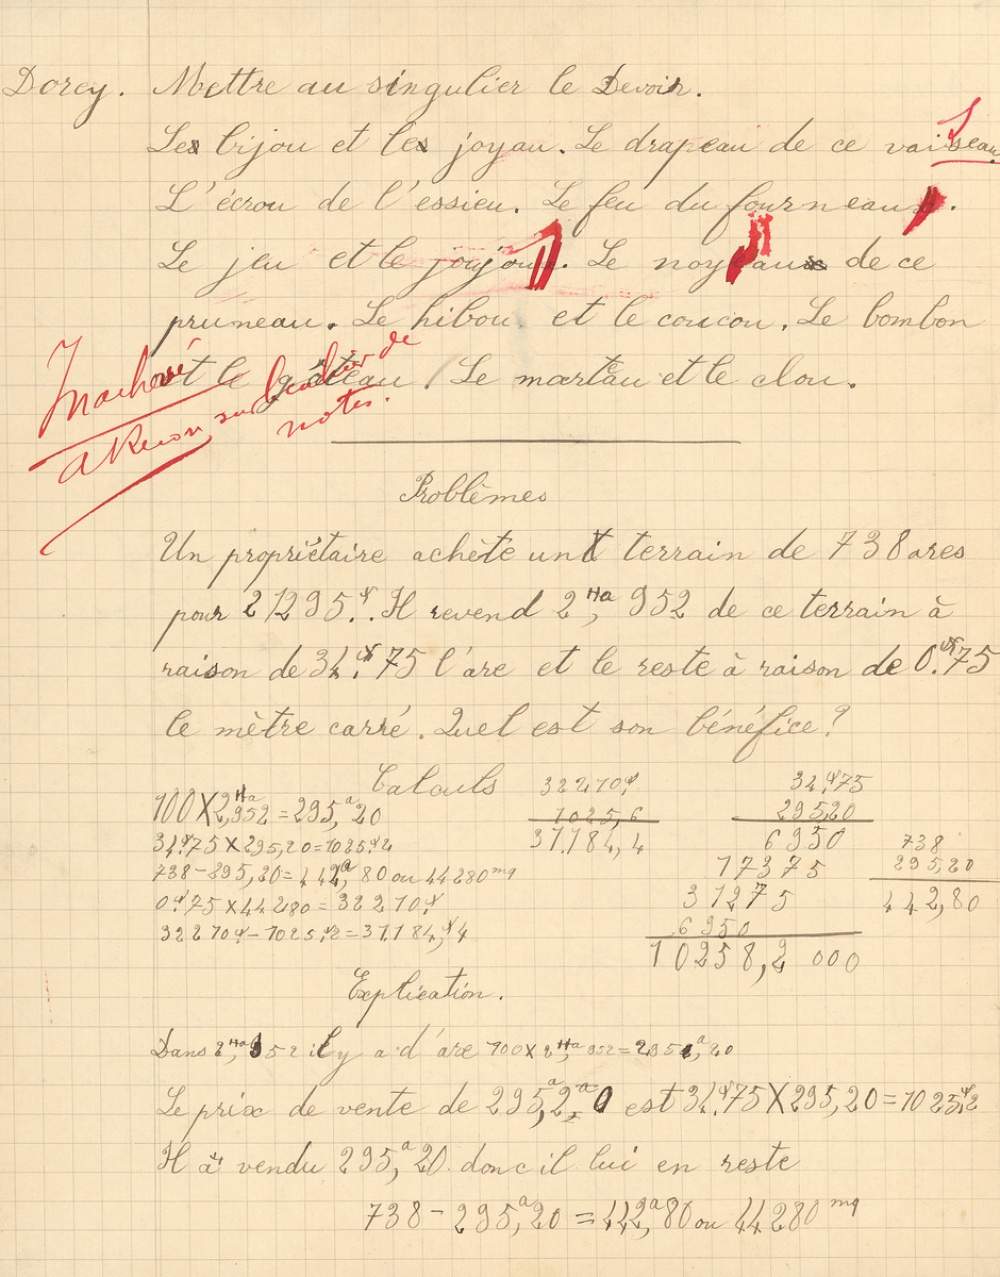 Dorey. Mettre au singulier le Devoir.
Le bijou et le joyau. Le drapeau de ce vaisseau.
L'écrou de l'essieu. Le feu du fourneau.
Le jeu et le joujou. Le noyau de ce
pruneau. Le hibou et le coucou. Le bombon
et le gâteau / Le marteau et le clou.
sur le cahier de
notes.
Problèmes
Un propriétaire achète un terrain de 738 ares
pour 21295f. Il revend 2Ha,952 de ce terrain à
raison de 34f.75 l'are et le reste à raison de 0f.75
le mètre carré. Quel est son bénéfice?
Calculs
100 X 2Ha,952 = 295,a20
34f.75 X 295,20 = 1025f.2
738 - 295,20 = 442,a80 ou 44280mq
0f.75 X 44280 = 32210f
32210f - 1025f,2 = 31.184,f4
32210f
1025,6
31.184,4
34f.75
295,20
6950
17375
31275
6950
10258,2 000
738
295,20
442,80
Explication.
Dans 2Ha,952 il y a d'are 100 X 2Ha,952 = 295,a20
Le prix de vente de 295,a20 est 34f.75 X 295,20 = 1025f.2
Il a vendu 295,a20 donc il lui en reste
738 - 295,a20 = 442,a80 ou 44280 mq